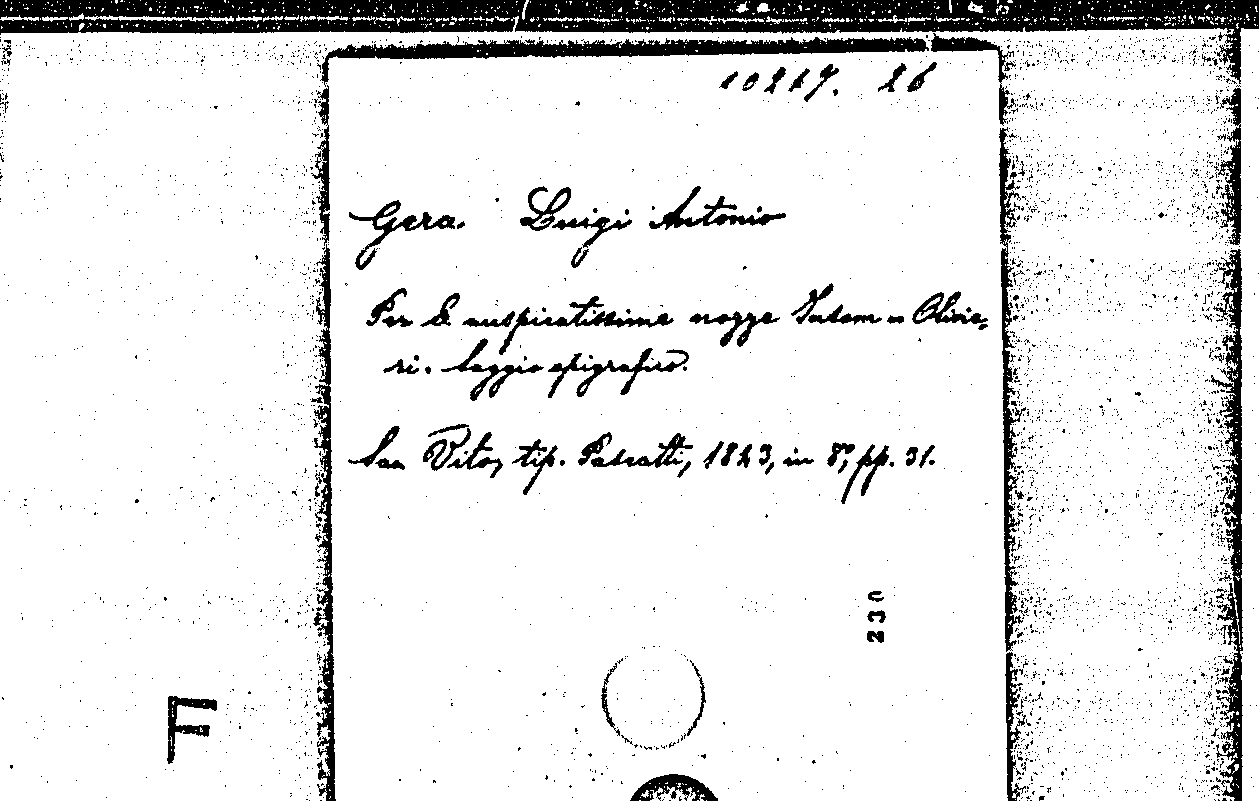 10217. 26
Gera Luigi Antonio
Per le auspicatissime nozze - Olivie-
ri. Saggio epigrafico.
San Vito, tip. Pascatti, 1823, in 8°, pp. 31.
230
F